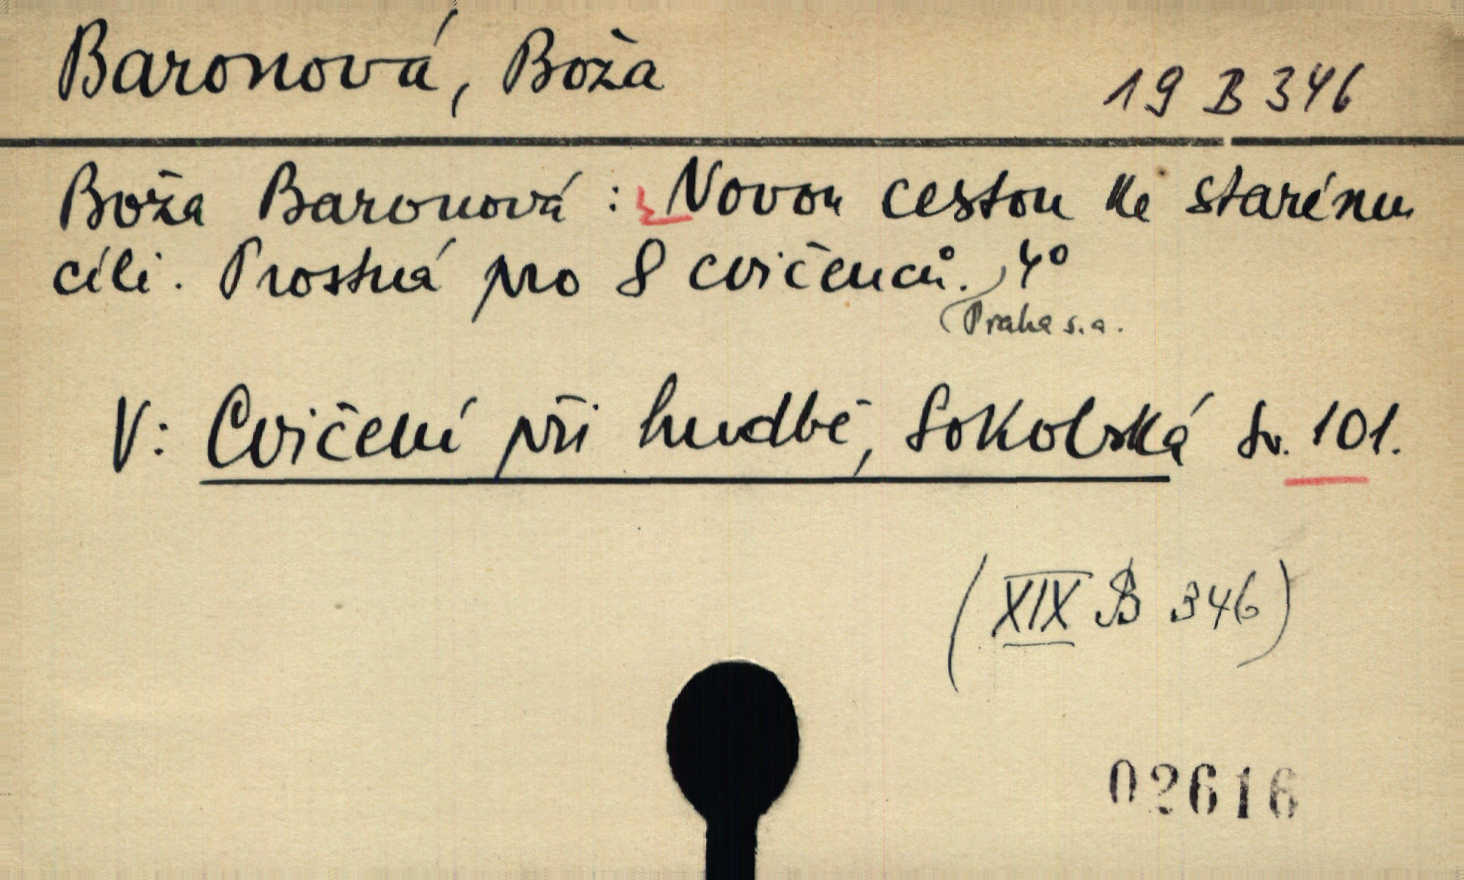 Baronová, Boža
19 B 346
Boža Baronová : Novou cestou ke starému
cíli. Prostná pro 8 cvičenců. 4°
(Praha s.a.
V: Cvičení při hudbě, Sokolská Sv. 101.
(XIX B 346)
02616